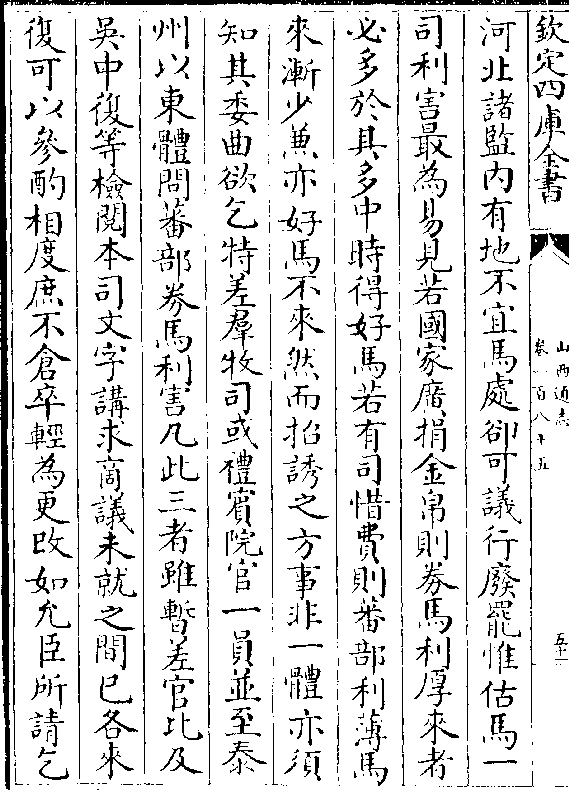 欽定四庫全書
山西通志
卷一百八十五
五十
河北諸監內有地不宜馬處卻可議行廢罷惟估馬一
司利害最為易見若國家廣捐金帛則券馬利厚來者
必多於其多中時得好馬若有司惜費則蕃部利薄馬
來漸少兼亦好馬不來然而招誘之方事非一體亦須
知其委曲欲乞特差羣牧司或禮賓院官一員並至秦
州以東體問蕃部券馬利害凡此三者雖暫差官比及
吳中復等檢閱本司文字講求商議未就之間已各來
復可以參酌相度庶不倉卒輕為更改如允臣所請乞